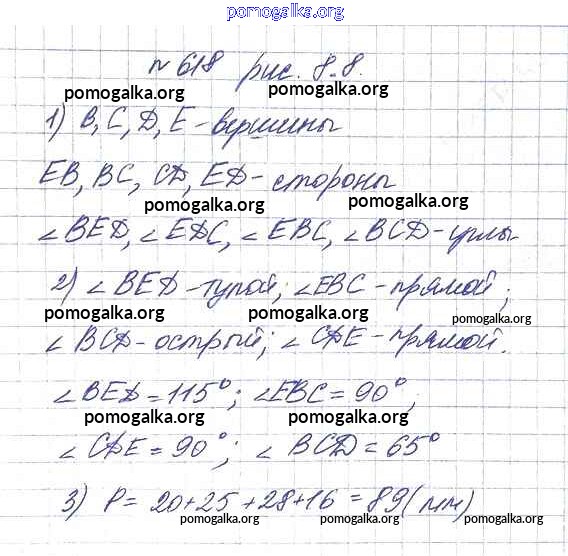 pomogalka.org
№ 618 рис. 8.8.
pomogalka.org pomogalka.org
1) B, C, D, E - вершины
pomogalka.org
EB, BC, CD, ED - стороны
pomogalka.org pomogalka.org
∠BED, ∠EDC, ∠EBC, ∠BCD - углы
2) ∠BED - тупой; ∠EBC - прямой;
pomogalka.org pomogalka.org
∠BCD - острый; ∠CDE - прямой.
∠BED = 115°; ∠EBC = 90°;
pomogalka.org pomogalka.org
∠CDE = 90°; ∠BCD = 65°
3) P = 20+25+28+16 = 89 (мм)
pomogalka.org pomogalka.org pomogalka.org